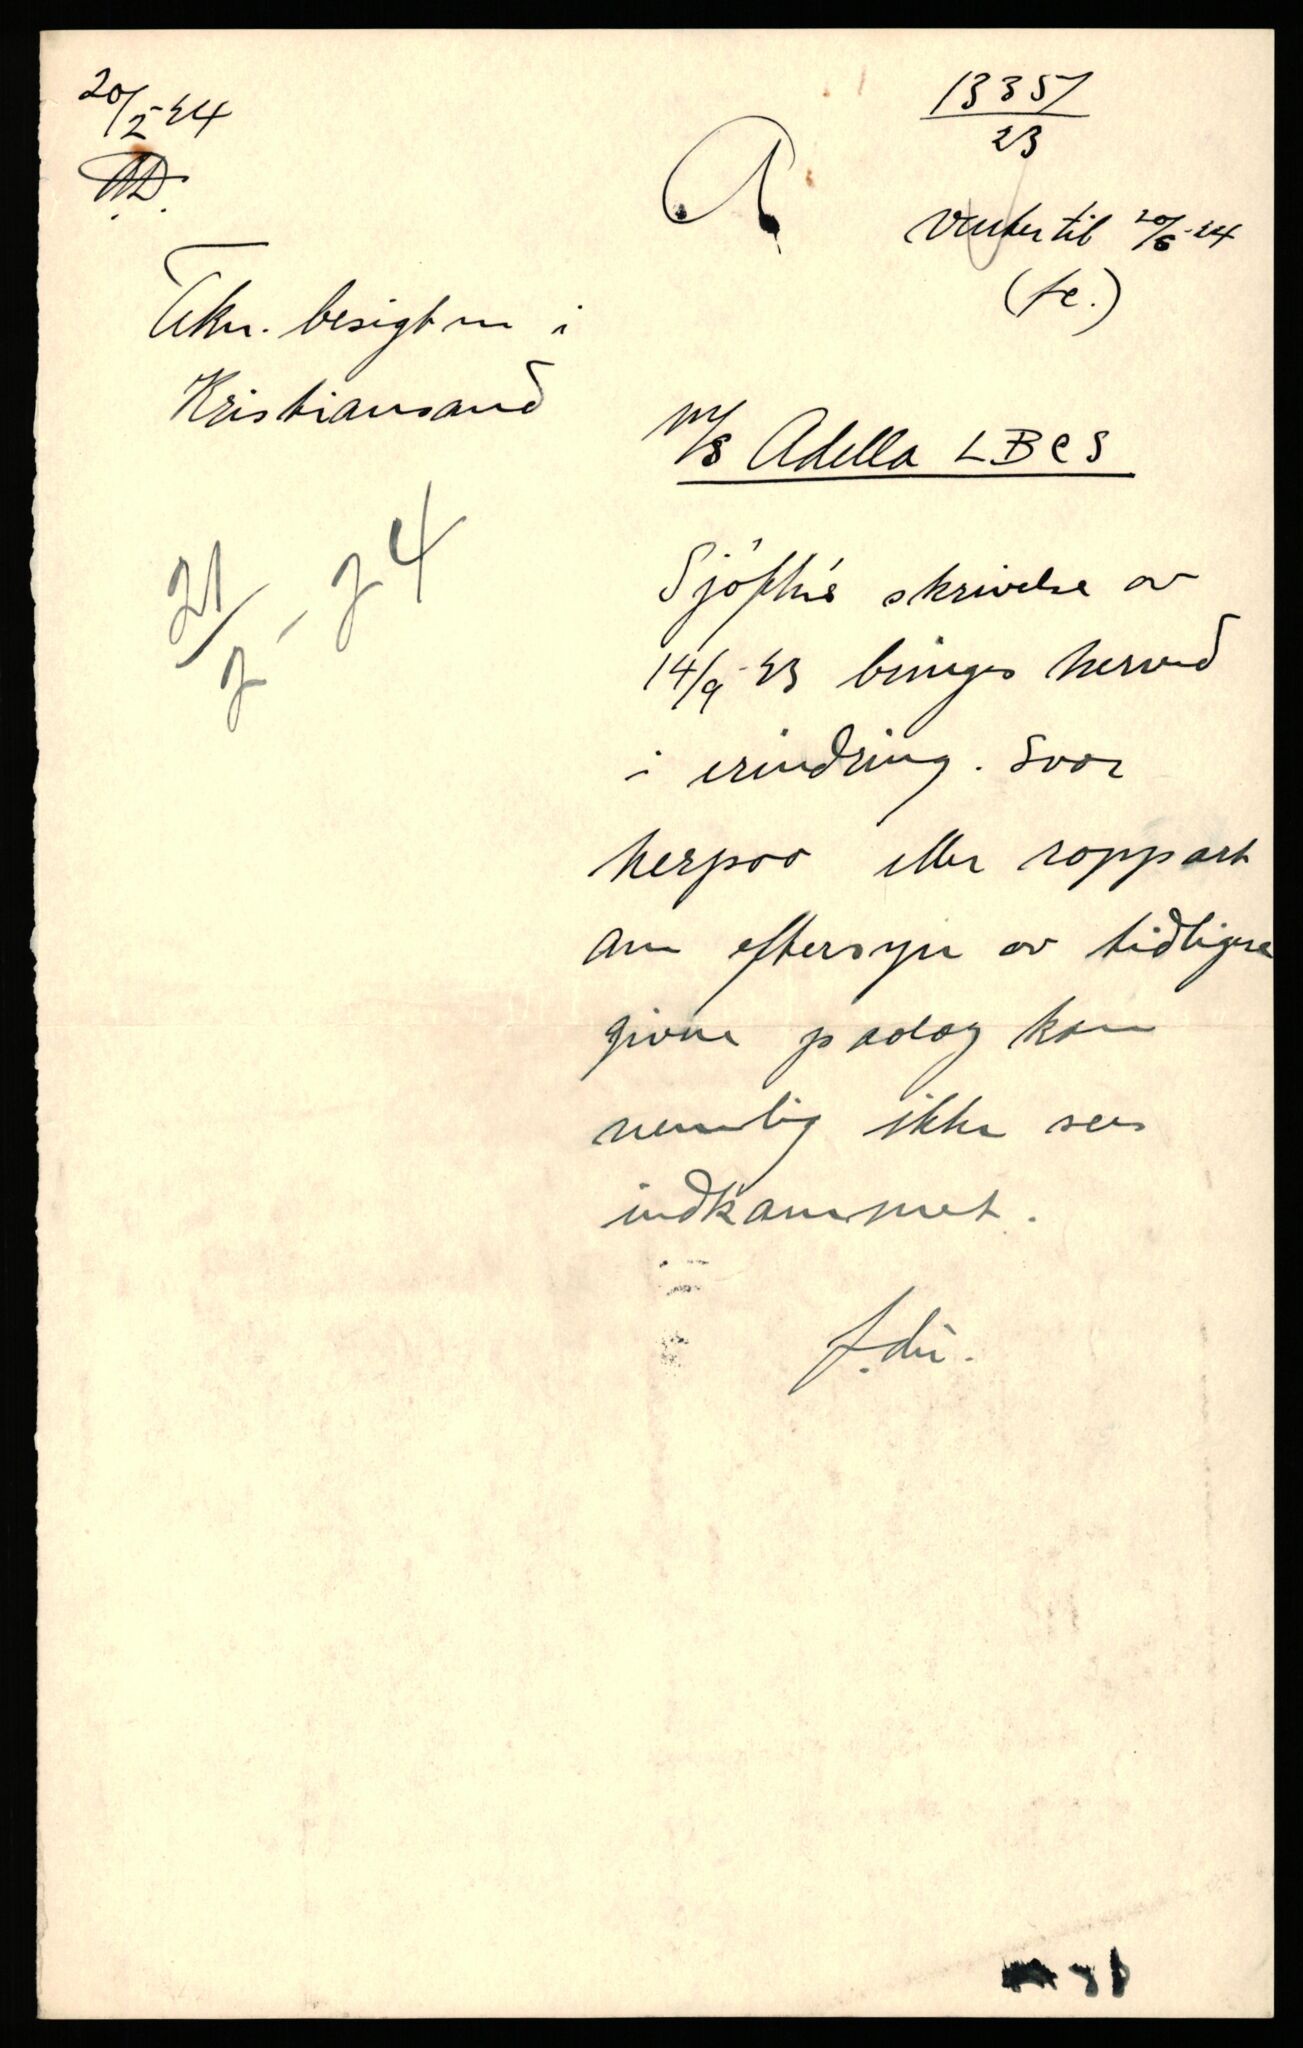 20/2-24
A.D.
Tekn. besigt.m i
Kristiansand
21/2-24
A
13357
23
Venter til 20/6-24
(fe.)
M/S Adella LBCS
Sjöfk's skrivelse av
14/9-23 bringes herved
i erindring. Svar
herpaa eller rapport
om eftersyn av tidligere
givne paalæg kan
nemlig ikke sees
indkommet.
f. dir.